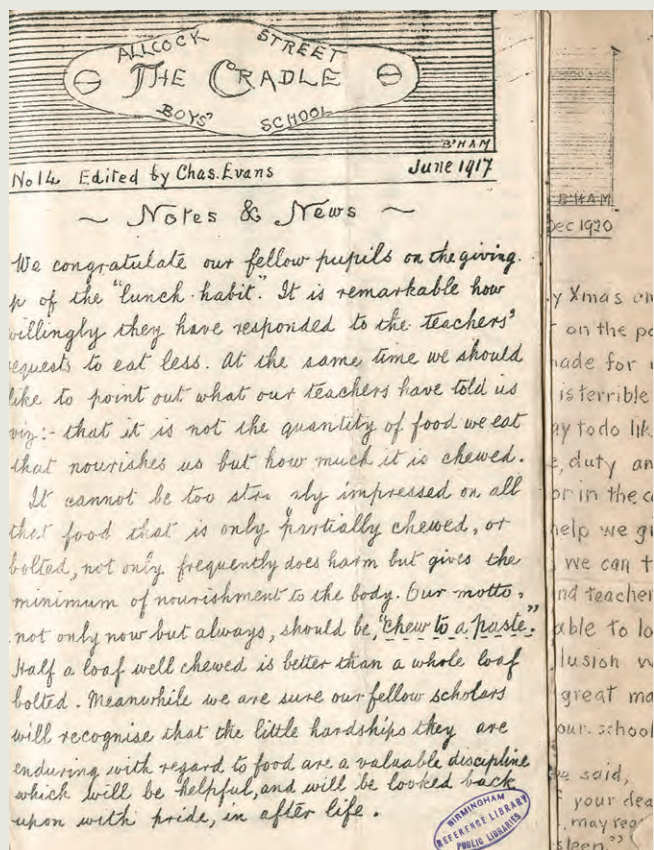 ALLCOCK STREET
THE CRADLE
BOYS' SCHOOL
B'HAM
No 14 Edited by Chas. Evans June 1917
~ Notes & News ~
We congratulate our fellow pupils on the giving
p of the "lunch-habit." It is remarkable how
willingly they have responded to the teachers'
equests to eat less. At the same time we should
like to point out what our teachers have told us
viz:- that it is not the quantity of food we eat
that nourishes us but how much it is chewed.
It cannot be too stro ngly impressed on all
that food that is only partially chewed, or
bolted, not only frequently does harm but gives the
minimum of nourishment to the body. Our motto,
not only now but always, should be, "chew to a paste."
Half a loaf well chewed is better than a whole loaf
bolted. Meanwhile we are sure our fellow scholars
will recognise that the little hardships they are
enduring with regard to food are a valuable discipline
which will be helpful, and will be looked back
upon with pride, in after life.
BIRMINGHAM
REFERENCE LIBRARY
PUBLIC LIBRARIES
B'HAM
Dec 1920
y Xmas
on the
ade for
is terrible
ay to do
e, duty
or in the
help we
we can
nd teacher
able to
lusion
great
our school
we said,
your
, may
sleep."